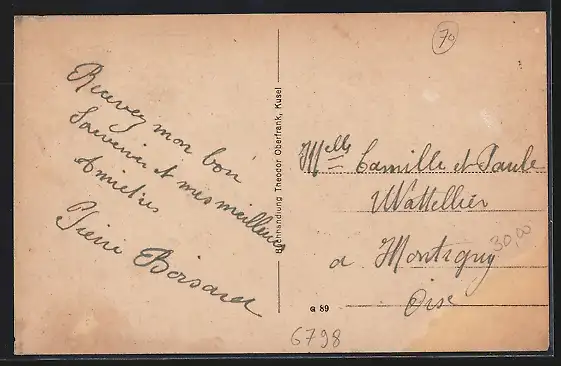 70
Recevez mon bon
Souvenir et mes meilleurs
Amitiés
Pierre Boisard
Buchhandlung Theodor Oberfrank, Kusel
Melles Camille et Paule
Wattellier
a Montigny
Oise
30,00
G 89
6798